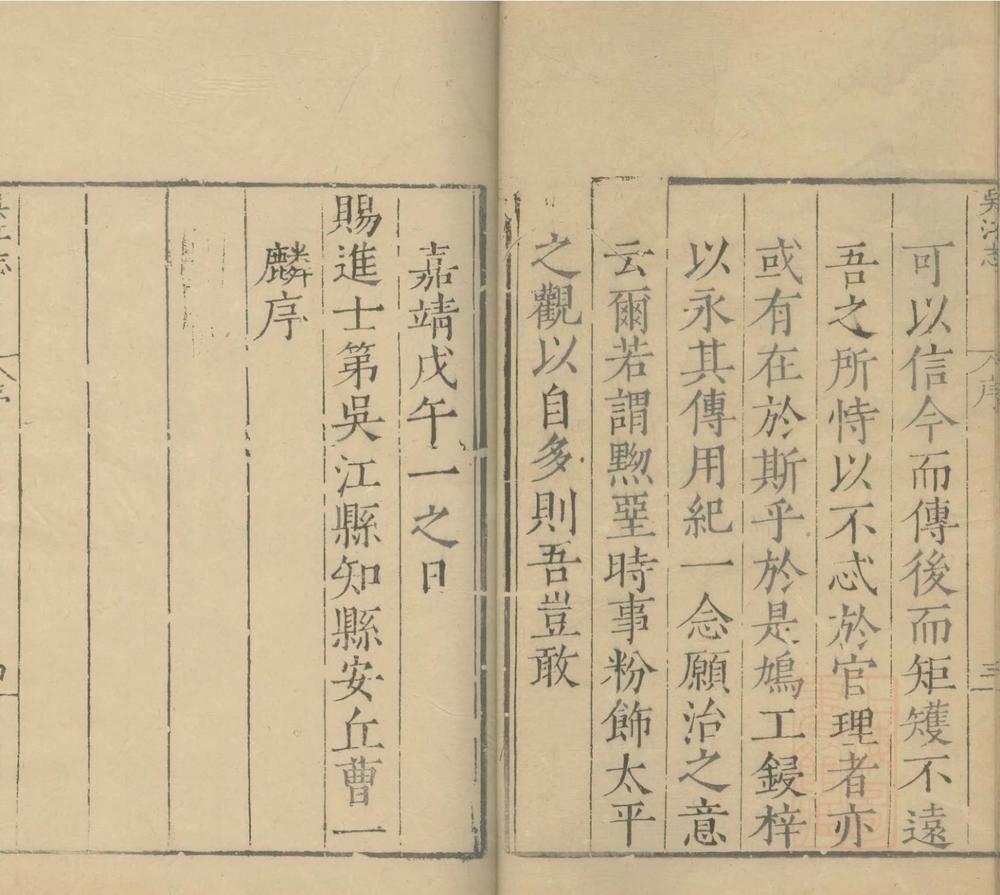 吳江志
序
三
可以信今而傳後而矩矱不遠
吾之所恃以不忒於官理者亦
或有在於斯乎於是鳩工鋟梓
以永其傳用紀一念願治之意
云爾若謂黝堊時事粉飾太平
之觀以自多則吾豈敢
嘉靖戊午一之日
賜進士第吳江縣知縣安丘曹一
麟序